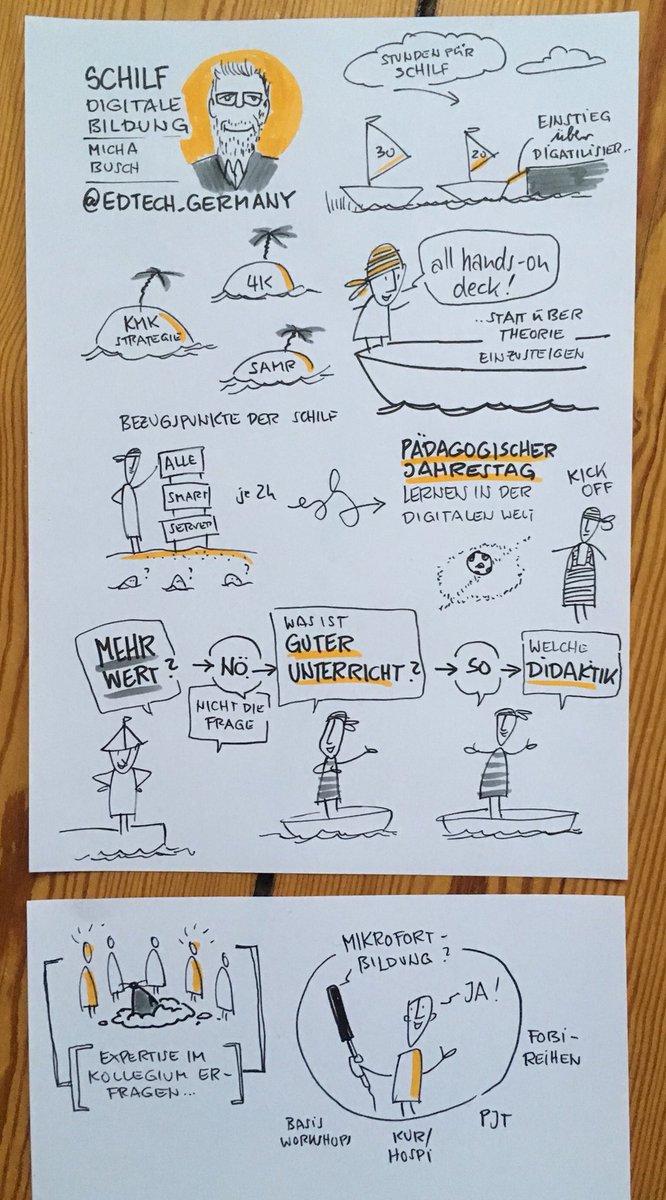 SCHILF
DIGITALE
BILDUNG
MICHA
BUSCH
@EDTECH_GERMANY
STUNDEN FÜR
SCHILF
30
20
EINSTIEG
über
DIGATILISIER..
KMK
STRATEGIE
4K
SAMR
BEZUGSPUNKTE DER SCHILF
all hands-on
deck!
..STATT ÜBER
THEORIE
EINZUSTEIGEN
ALLE
SMART
SERVER
je 2h
? ? ?
PÄDAGOGISCHER
JAHRESTAG
LERNEN IN DER
DIGITALEN WELT
KICK
OFF
MEHR
WERT?
NÖ
NICHT DIE
FRAGE
WAS IST
GUTER
UNTERRICHT?
SO
WELCHE
DIDAKTIK
EXPERTISE IM
KOLLEGIUM ER-
FRAGEN...
MIKROFORT-
BILDUNG?
JA!
BASIS
WORKSHOPS
KUR/
HOSPI
PJT
FOBI-
REIHEN